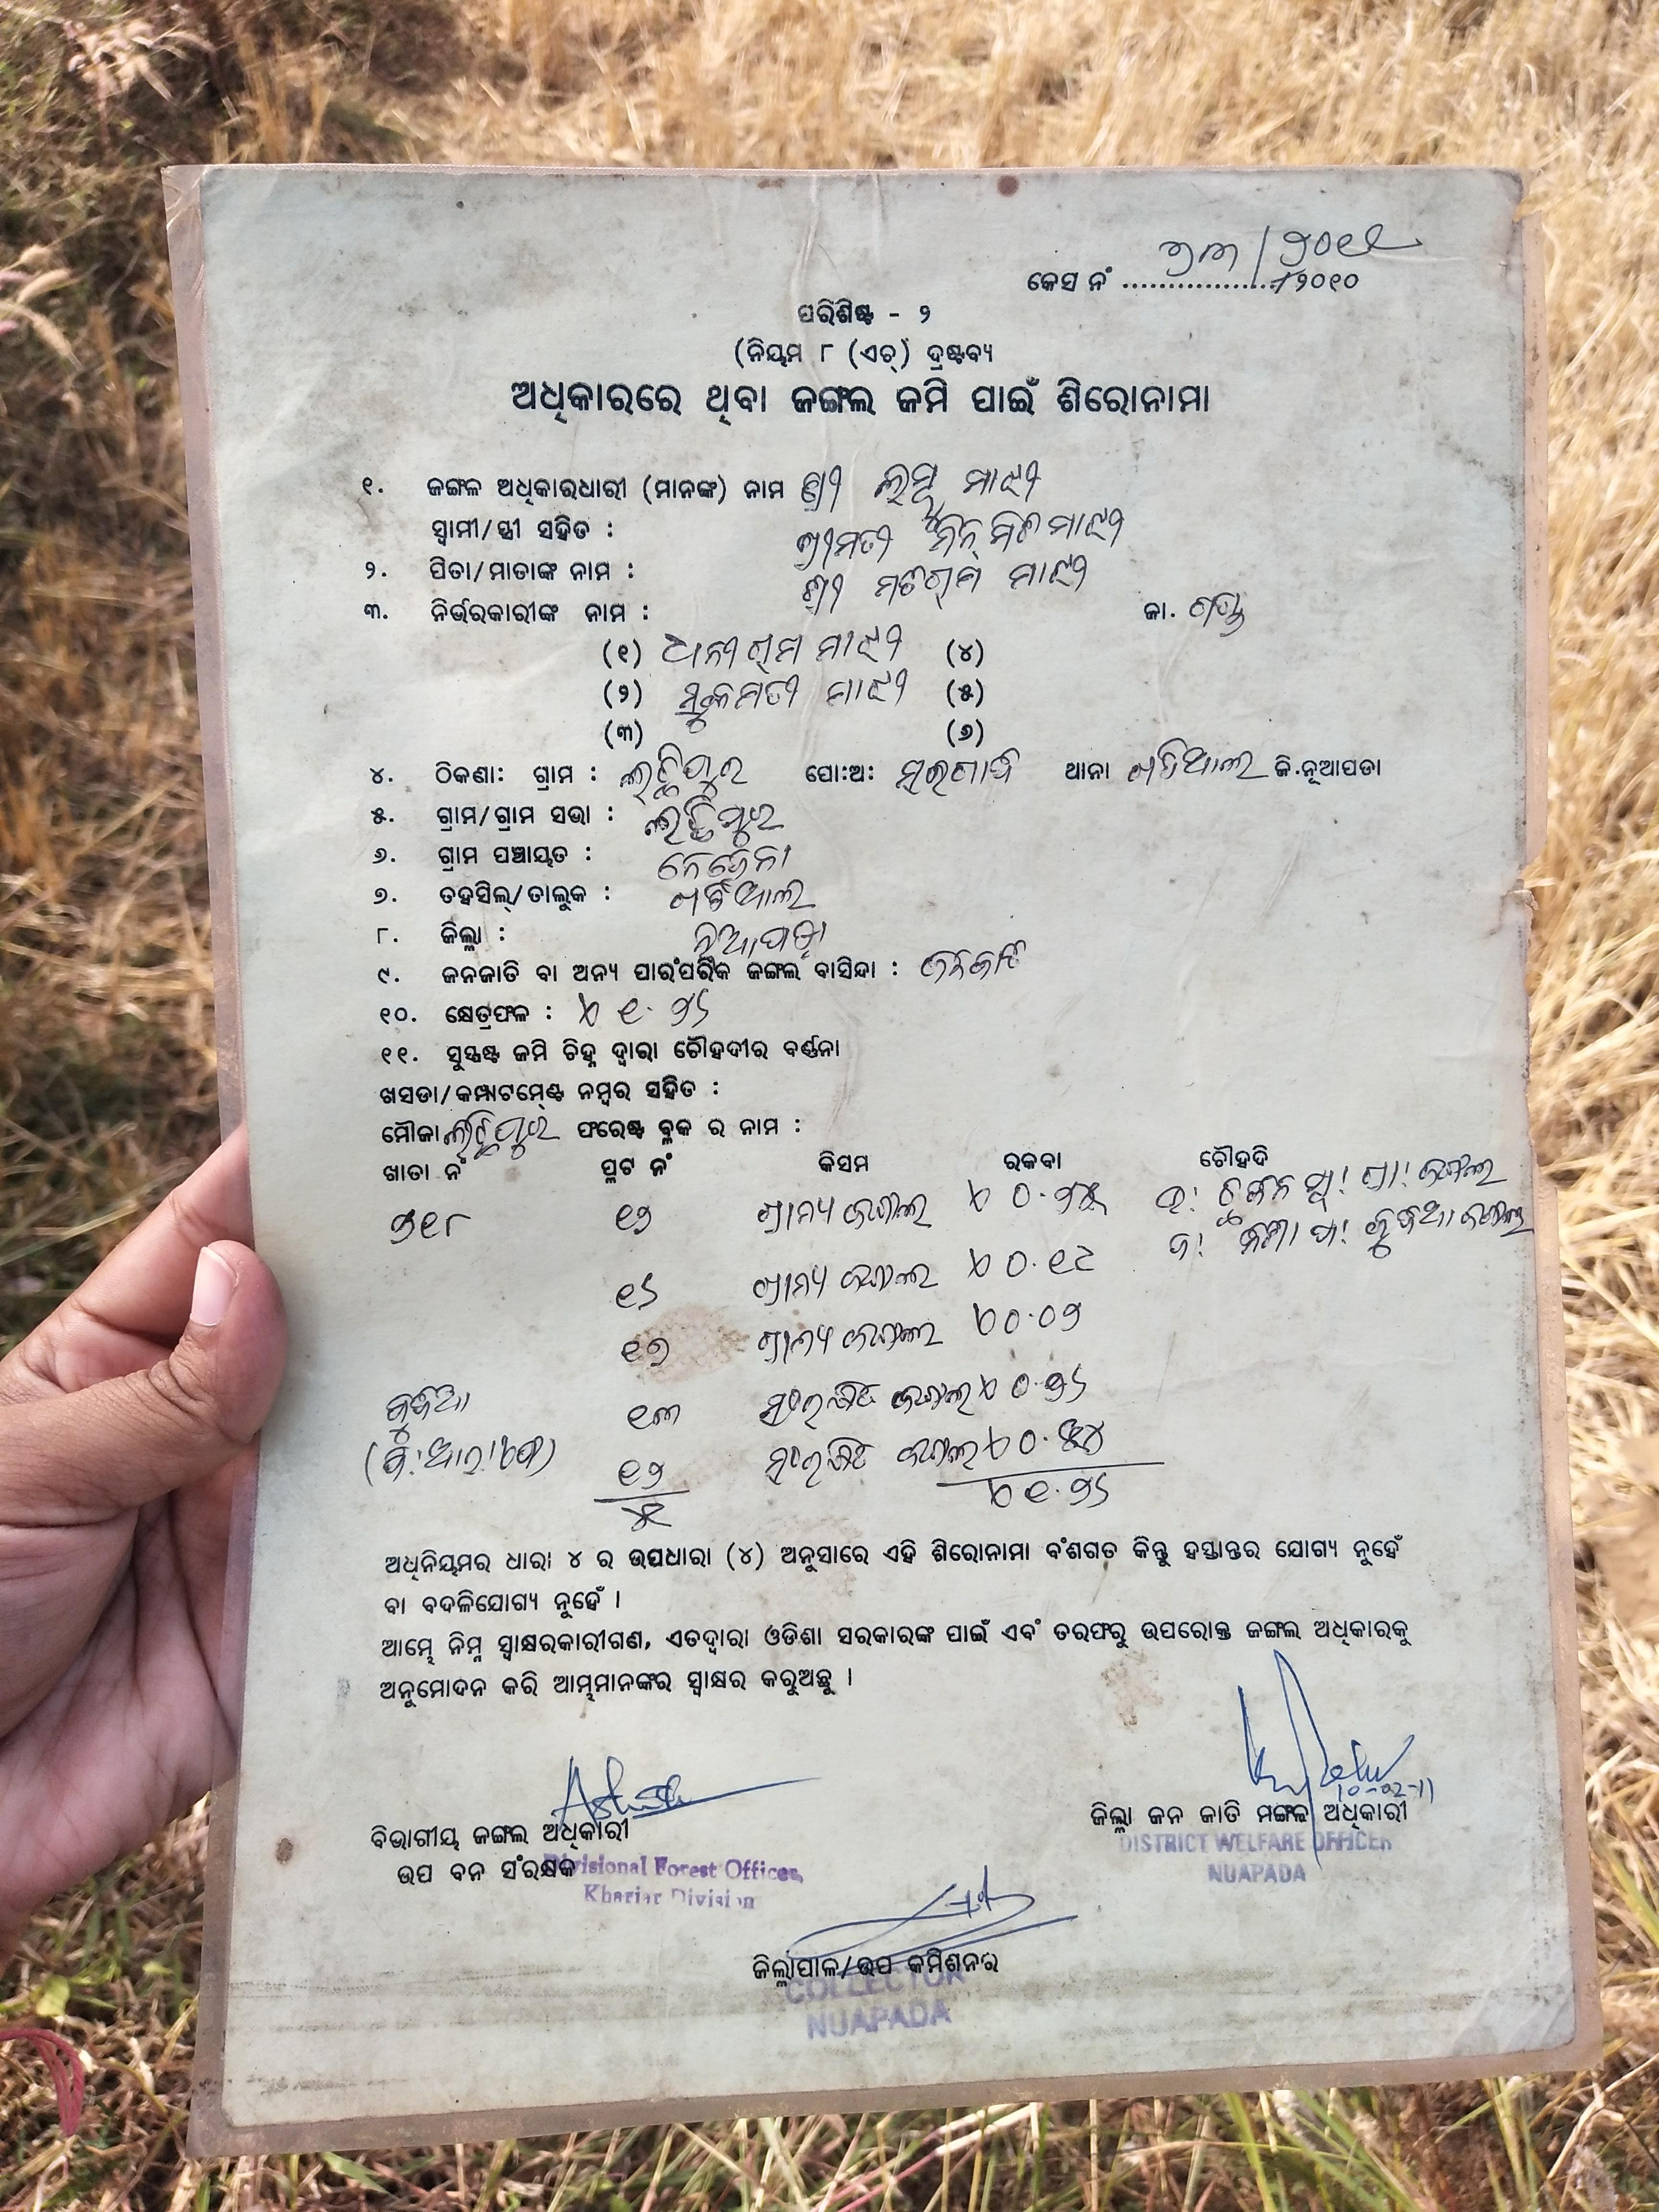 ୨୩/୨୦୧୧
କେସ ନଂ ................../୨୦୧୦
ପରିଶିଷ୍ଟ - ୨
(ନିୟମ ୮ (ଏଚ୍) ଦ୍ରଷ୍ଟବ୍ୟ
ଅଧିକାରରେ ଥିବା ଜଙ୍ଗଲ ଜମି ପାଇଁ ଶିରୋନାମା
୧. ଜଙ୍ଗଳ ଅଧିକାରଧାରୀ (ମାନଙ୍କ) ନାମ ଶ୍ରୀ ମାଝୀ
ସ୍ୱାମୀ/ସ୍ତ୍ରୀ ସହିତ : ଶ୍ରୀମତୀ ମାଝୀ
୨. ପିତା/ମାତାଙ୍କ ନାମ : ଶ୍ରୀ ମାଝୀ
୩. ନିର୍ଭରକାରୀଙ୍କ ନାମ : ଜା. ଗଣ୍ଡ
(୧) ଧନୀରାମ ମାଝୀ (୪)
(୨) ସୁକମତୀ ମାଝୀ (୫)
(୩) (୬)
୪. ଠିକଣା: ଗ୍ରାମ : ଲଚ୍ଛିପୁର ପୋ:ଅ: ଥାନା ଖଡିଆଲ ଜି.ନୂଆପଡା
୫. ଗ୍ରାମ/ଗ୍ରାମ ସଭା : ଲଚ୍ଛିପୁର
୬. ଗ୍ରାମ ପଞ୍ଚାୟତ :
୭. ତହସିଲ୍/ତାଲୁକ : ଖଡିଆଲ
୮. ଜିଲ୍ଲା : ନୂଆପଡା
୯. ଜନଜାତି ବା ଅନ୍ୟ ପାରଂପରିକ ଜଙ୍ଗଲ ବାସିନ୍ଦା : ଜନଜାତି
୧୦. କ୍ଷେତ୍ରଫଳ : ୧.୨୬
୧୧. ସୁସ୍ପଷ୍ଟ ଜମି ଚିହ୍ନ ଦ୍ୱାରା ଚୌହଦୀର ବର୍ଣ୍ଣନା
ଖସଡା/କମ୍ପାଟମେଣ୍ଟ ନମ୍ବର ସହିତ :
ମୌଜା ଲଚ୍ଛିପୁର ଫରେଷ୍ଟ ବ୍ଲକ ର ନାମ :
ଖାତା ନଂ ପ୍ଲଟ ନଂ କିସମ ରକବା ଚୌହଦି
୨୧୮ ୧୨ ଗ୍ରାମ୍ୟ ଜଙ୍ଗଲ ଜଙ୍ଗଲ
୧୬ ଗ୍ରାମ୍ୟ ଜଙ୍ଗଲ
ଗ୍ରାମ୍ୟ ଜଙ୍ଗଲ ୦.୦୨
୧୩ ସଂରକ୍ଷିତ ଜଙ୍ଗଲ ୦.୨୬
୧୨ ସଂରକ୍ଷିତ ଜଙ୍ଗଲ
୫ ୧.୨୬
ଅଧିନିୟମର ଧାରା ୪ ର ଉପଧାରା (୪) ଅନୁସାରେ ଏହି ଶିରୋନାମା ବଂଶଗତ କିନ୍ତୁ ହସ୍ତାନ୍ତର ଯୋଗ୍ୟ ନୁହେଁ
ବା ବଦଳିଯୋଗ୍ୟ ନୁହେଁ ।
ଆମ୍ଭେ ନିମ୍ନ ସ୍ୱାକ୍ଷରକାରୀଗଣ, ଏତଦ୍ୱାରା ଓଡିଶା ସରକାରଙ୍କ ପାଇଁ ଏବଂ ତରଫରୁ ଉପରୋକ୍ତ ଜଙ୍ଗଲ ଅଧିକାରକୁ
ଅନୁମୋଦନ କରି ଆମ୍ଭମାନଙ୍କର ସ୍ୱାକ୍ଷର କରୁଅଛୁ ।
10-02-11
ବିଭାଗୀୟ ଜଙ୍ଗଲ ଅଧିକାରୀ ଜିଲ୍ଲା ଜନ ଜାତି ମଙ୍ଗଳ ଅଧିକାରୀ
ଉପ ବନ ସଂରକ୍ଷକ Divisional Forest Officer, DISTRICT WELFARE OFFICER
Khariar Division NUAPADA
ଜିଲ୍ଲାପାଳ/ଉପ କମିଶନର
COLLECTOR
NUAPADA